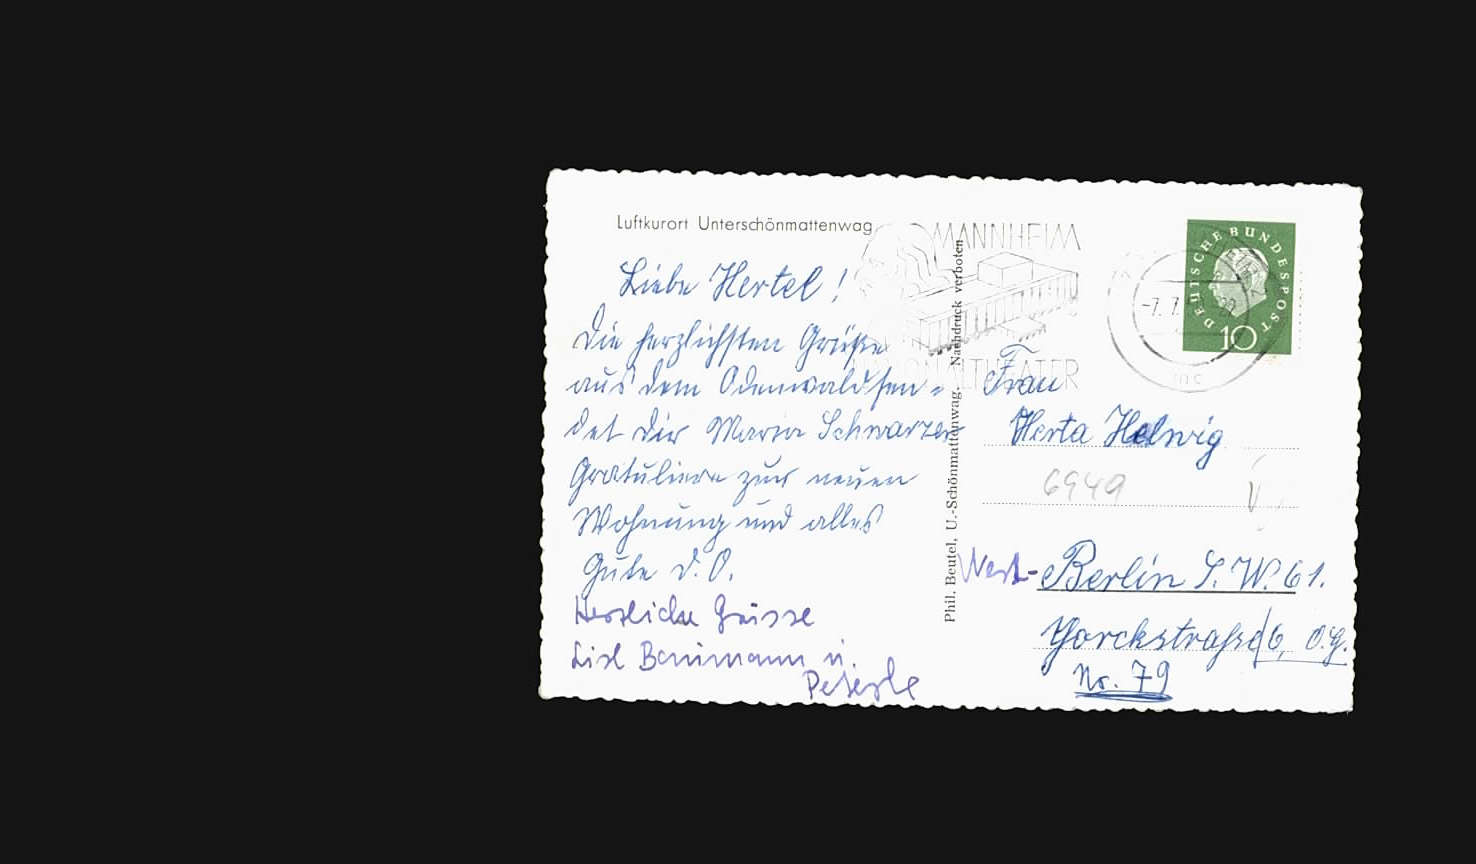 Luftkurort Unterschönmattenwag
Liebe Hertel!
Die herzlichsten Grüße
aus dem Odenwald sen-
det Dir Maria Schwarzer
Gratuliere zur neuen
Wohnung und alles
Gute d. O.
Herzliche Grüsse
Lisl Baumann u.
Peterle
Phil. Beutel, U.-Schönmattenwag. Nachdruck verboten
MANNHEIM
NATIONALTHEATER
-7. 7.
DEUTSCHE BUNDESPOST
10
Frau
Herta Helwig
6949
West-Berlin S.W. 61.
Yorckstraße
Nr. 79